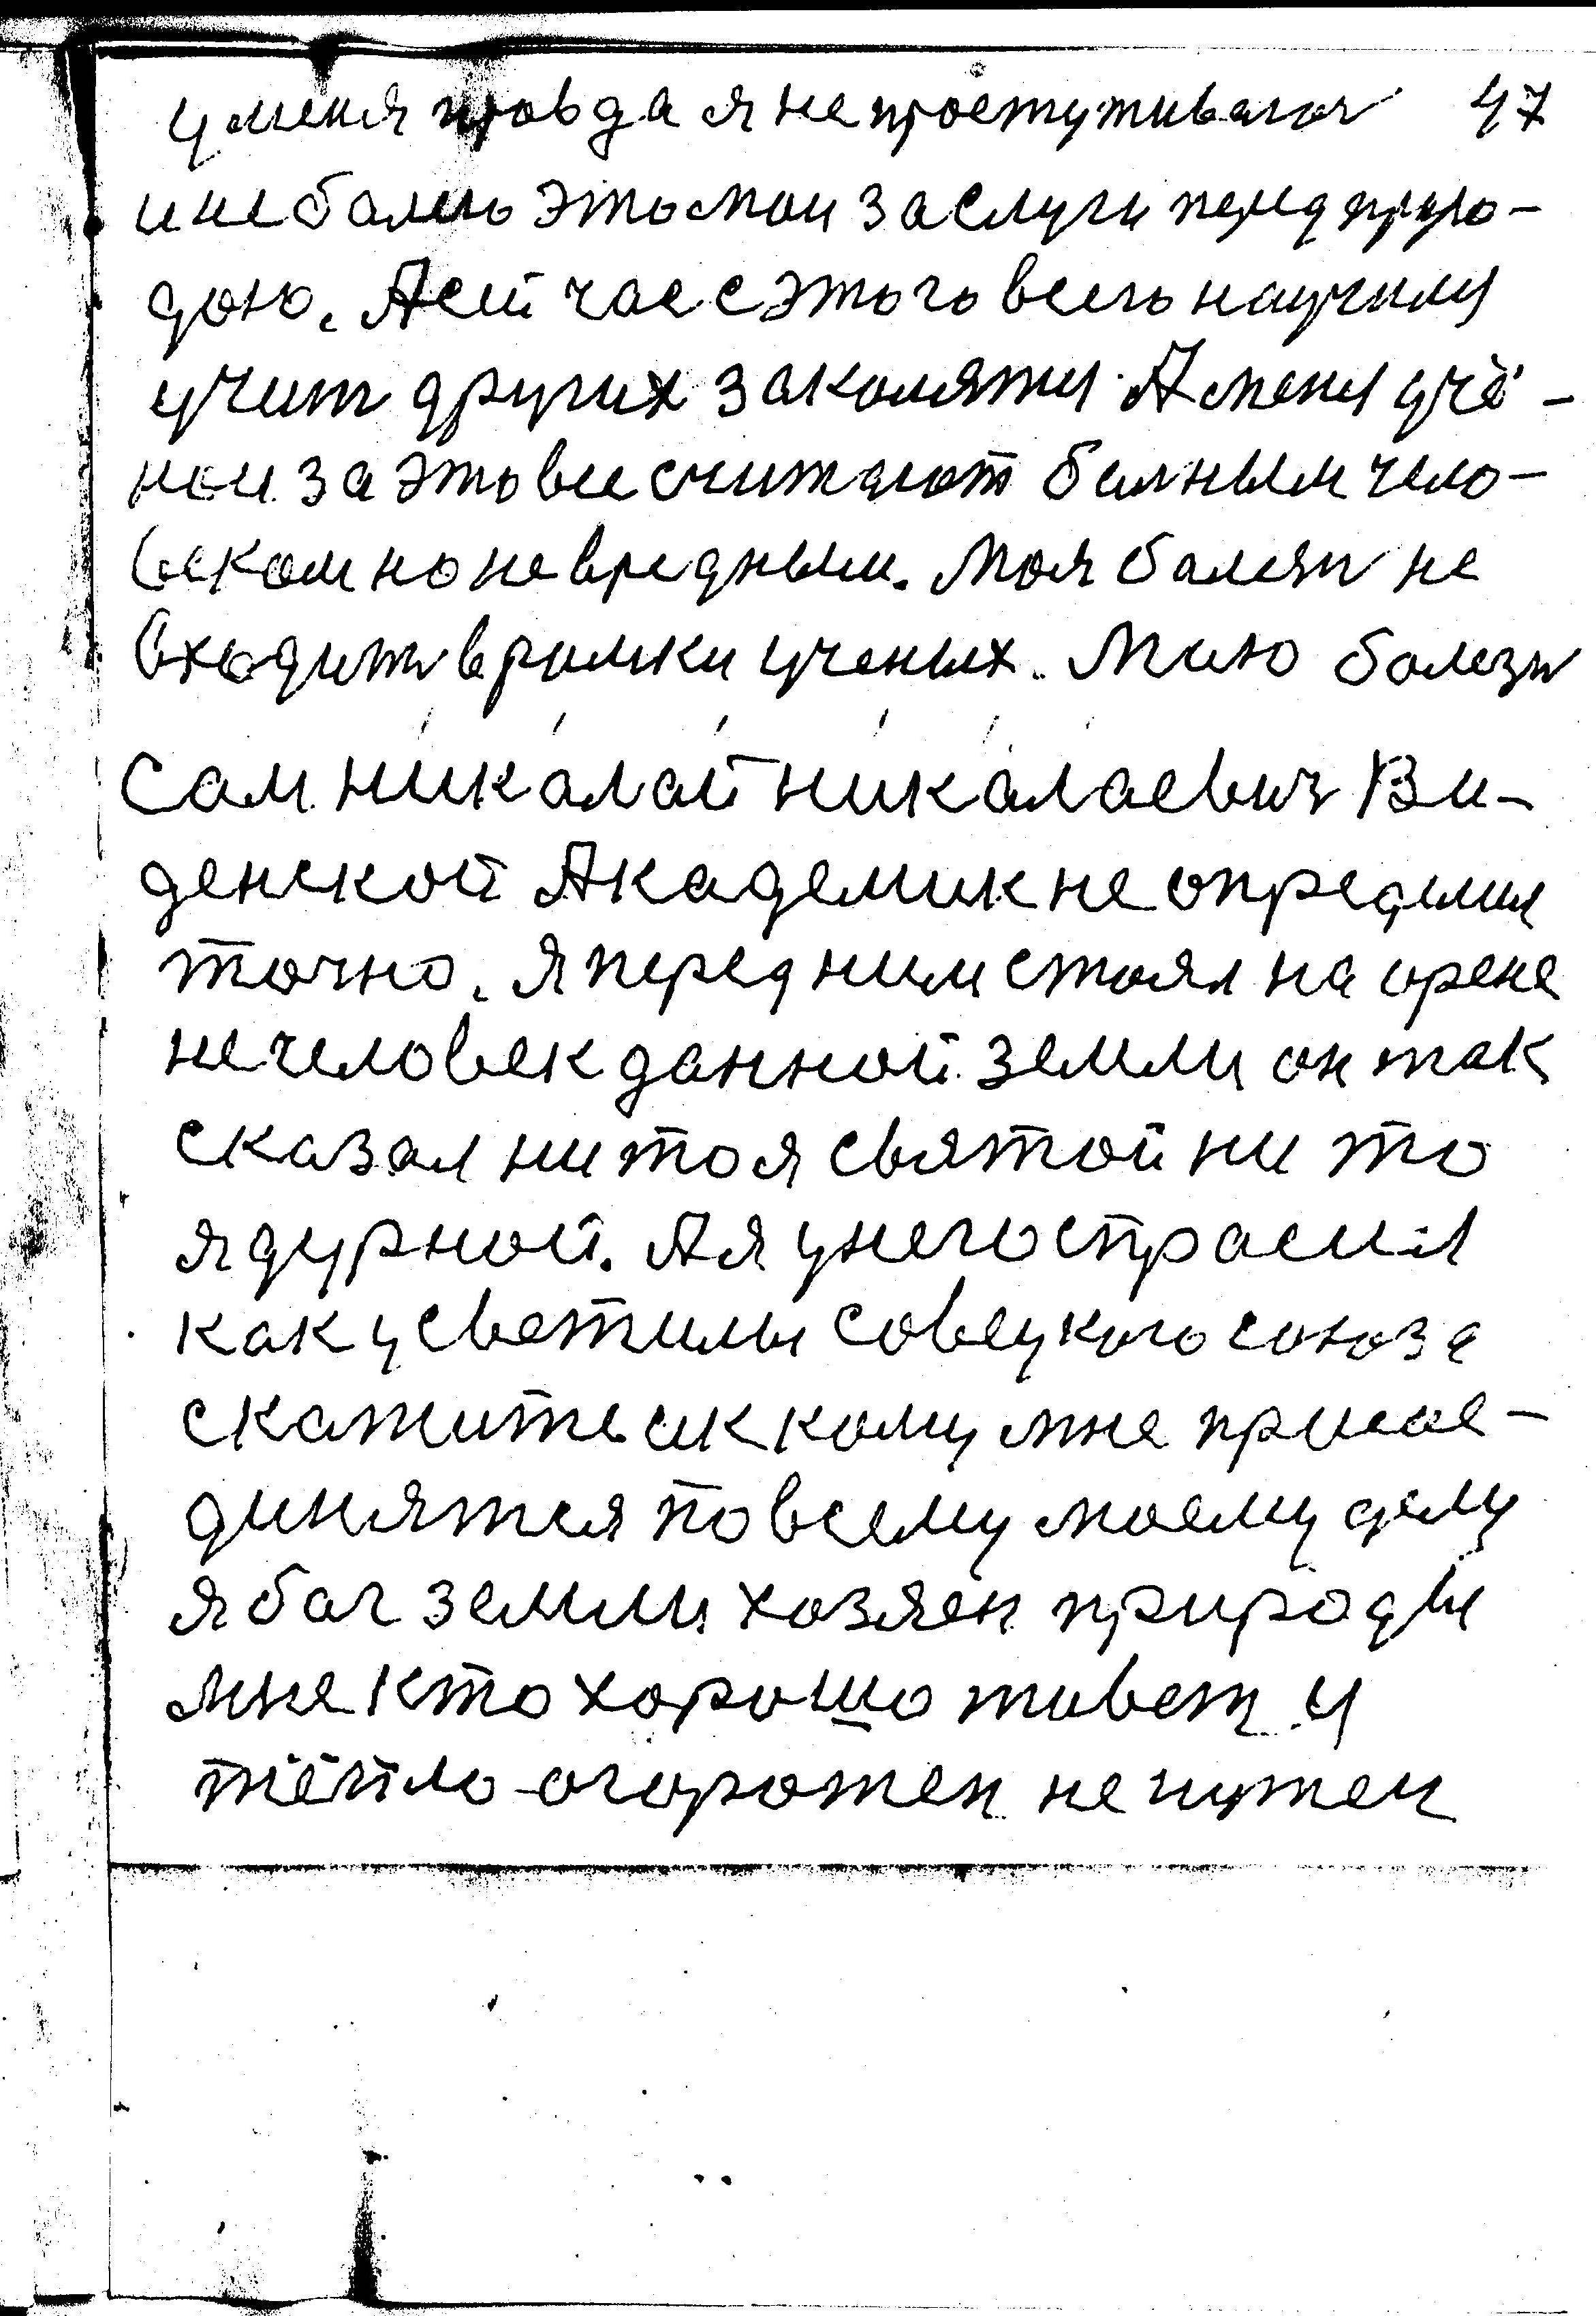 у меня провда я не простуживаюсь 47
и не болею это мои заслуги перед приро-
дою. А сей час с этого всего научился
учит других заколятся А меня учё-
ные за это все считают болным чело-
веком но невредным. Моя болезн не
входит в ромки ученых. Маю болезн
Сам Николай Николаевич Вве-
денской Академик не определил
точно. Я перед ним стоял на орене
не человек данной земли он так
сказал ни то я святой ни то
я дурной. А я у него спросил
как у светилы Совецкого союза
скажите ик кому мне присое-
динятся по всему моему делу
я бог земли хозяен природы
мне кто хорошо живет и
тёпло огорожен не нужен